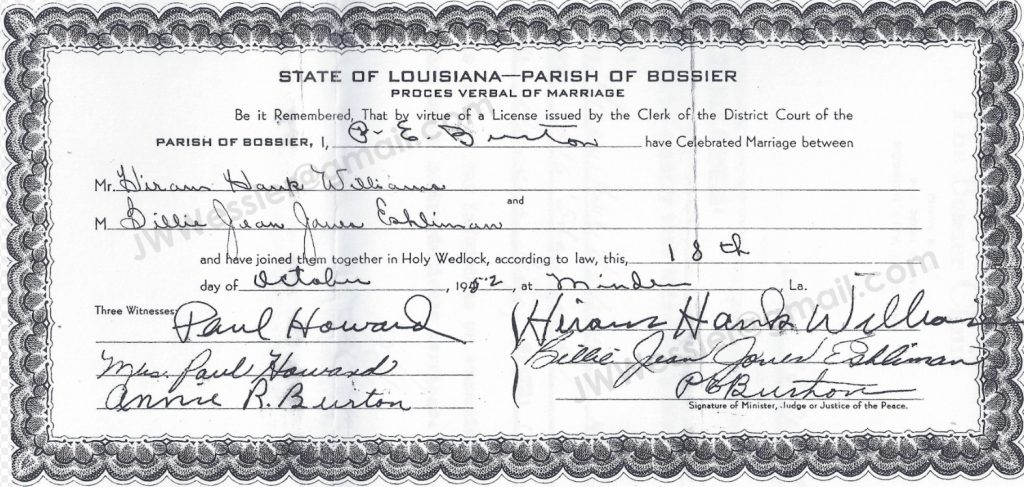 STATE OF LOUISIANA—PARISH OF BOSSIER
PROCES VERBAL OF MARRIAGE
Be it Remembered, That by virtue of a License issued by the Clerk of the District Court of the
PARISH OF BOSSIER, I, P. E. Burton have Celebrated Marriage between
Mr. Hiram Hank Williams
and
M Billie Jean Jones Eshliman
and have joined them together in Holy Wedlock, according to law, this, 18th
day of October, 1952, at Minden, La.
Three Witnesses: Paul Howard
Mrs. Paul Howard
Annie R. Burton
Hiram Hank Williams
Billie Jean Jones Eshliman
P E Burton
Signature of Minister, Judge or Justice of the Peace.
JWWessler@gmail.com
JWWessler@gmail.com